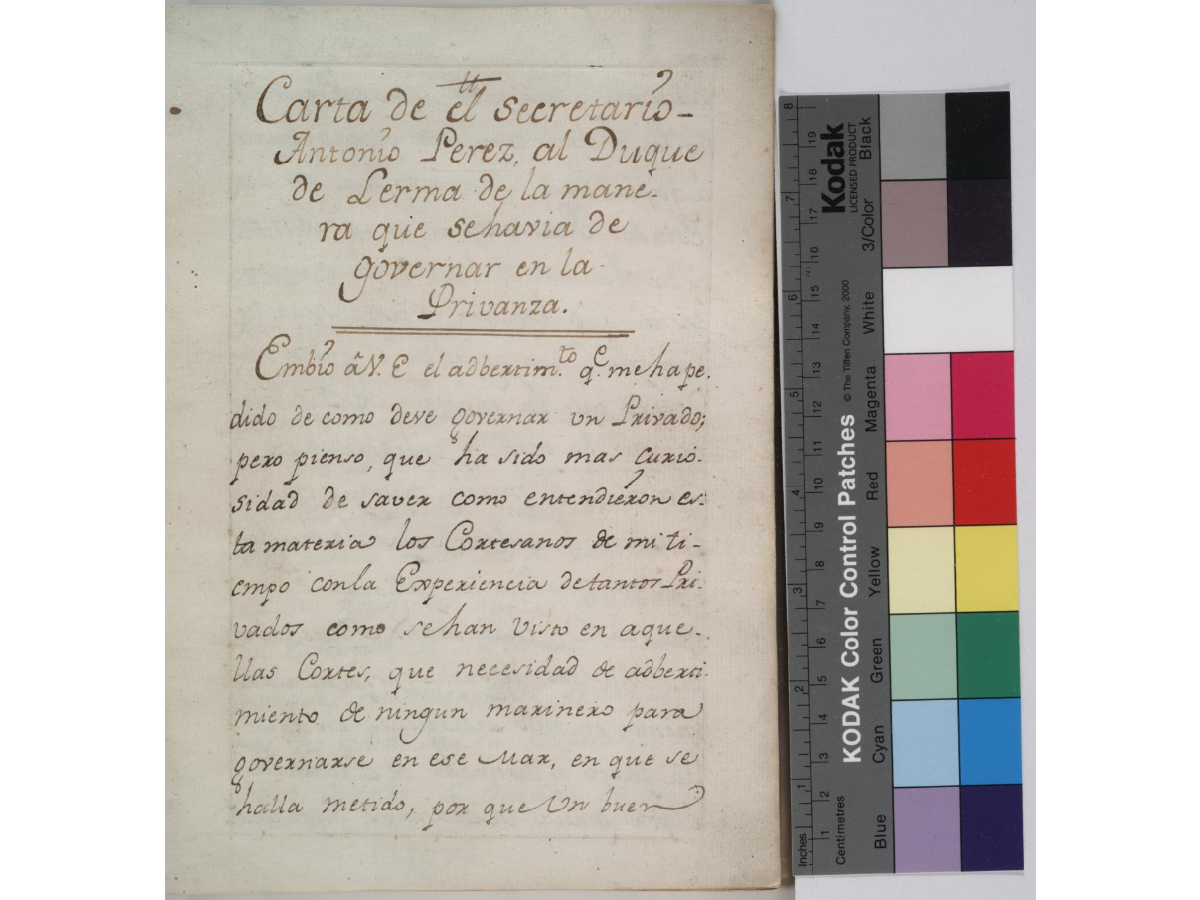 Carta de el secretario
Antonio Perez, al Duque
de Lerma de la mane-
ra que sehavia de
governar en la
Privanza.
Embio â V. E el adbertim.to q.e mehape-
dido de como deve governar vn Privado;
pero pienso, que ha sido mas curio-
sidad de saver como entendieron es-
ta materia los Cortesanos de mi ti-
empo conla Experiencia detantos Pri-
vados como sehan visto en aque-
llas Cortes, que necesidad de adberti-
miento de ningun marinero para
governarse en ese Mar, en que se
halla metido, por que Un buen
KODAK Color Control Patches
© The Tiffen Company, 2000
Kodak
LICENSED PRODUCT
Blue
Cyan
Green
Yellow
Red
Magenta
White
3/Color
Black
Inches
1
2
3
4
5
6
7
8
Centimetres
1
2
3
4
5
6
7
8
9
10
11
12
13
14
15
16
17
18
19